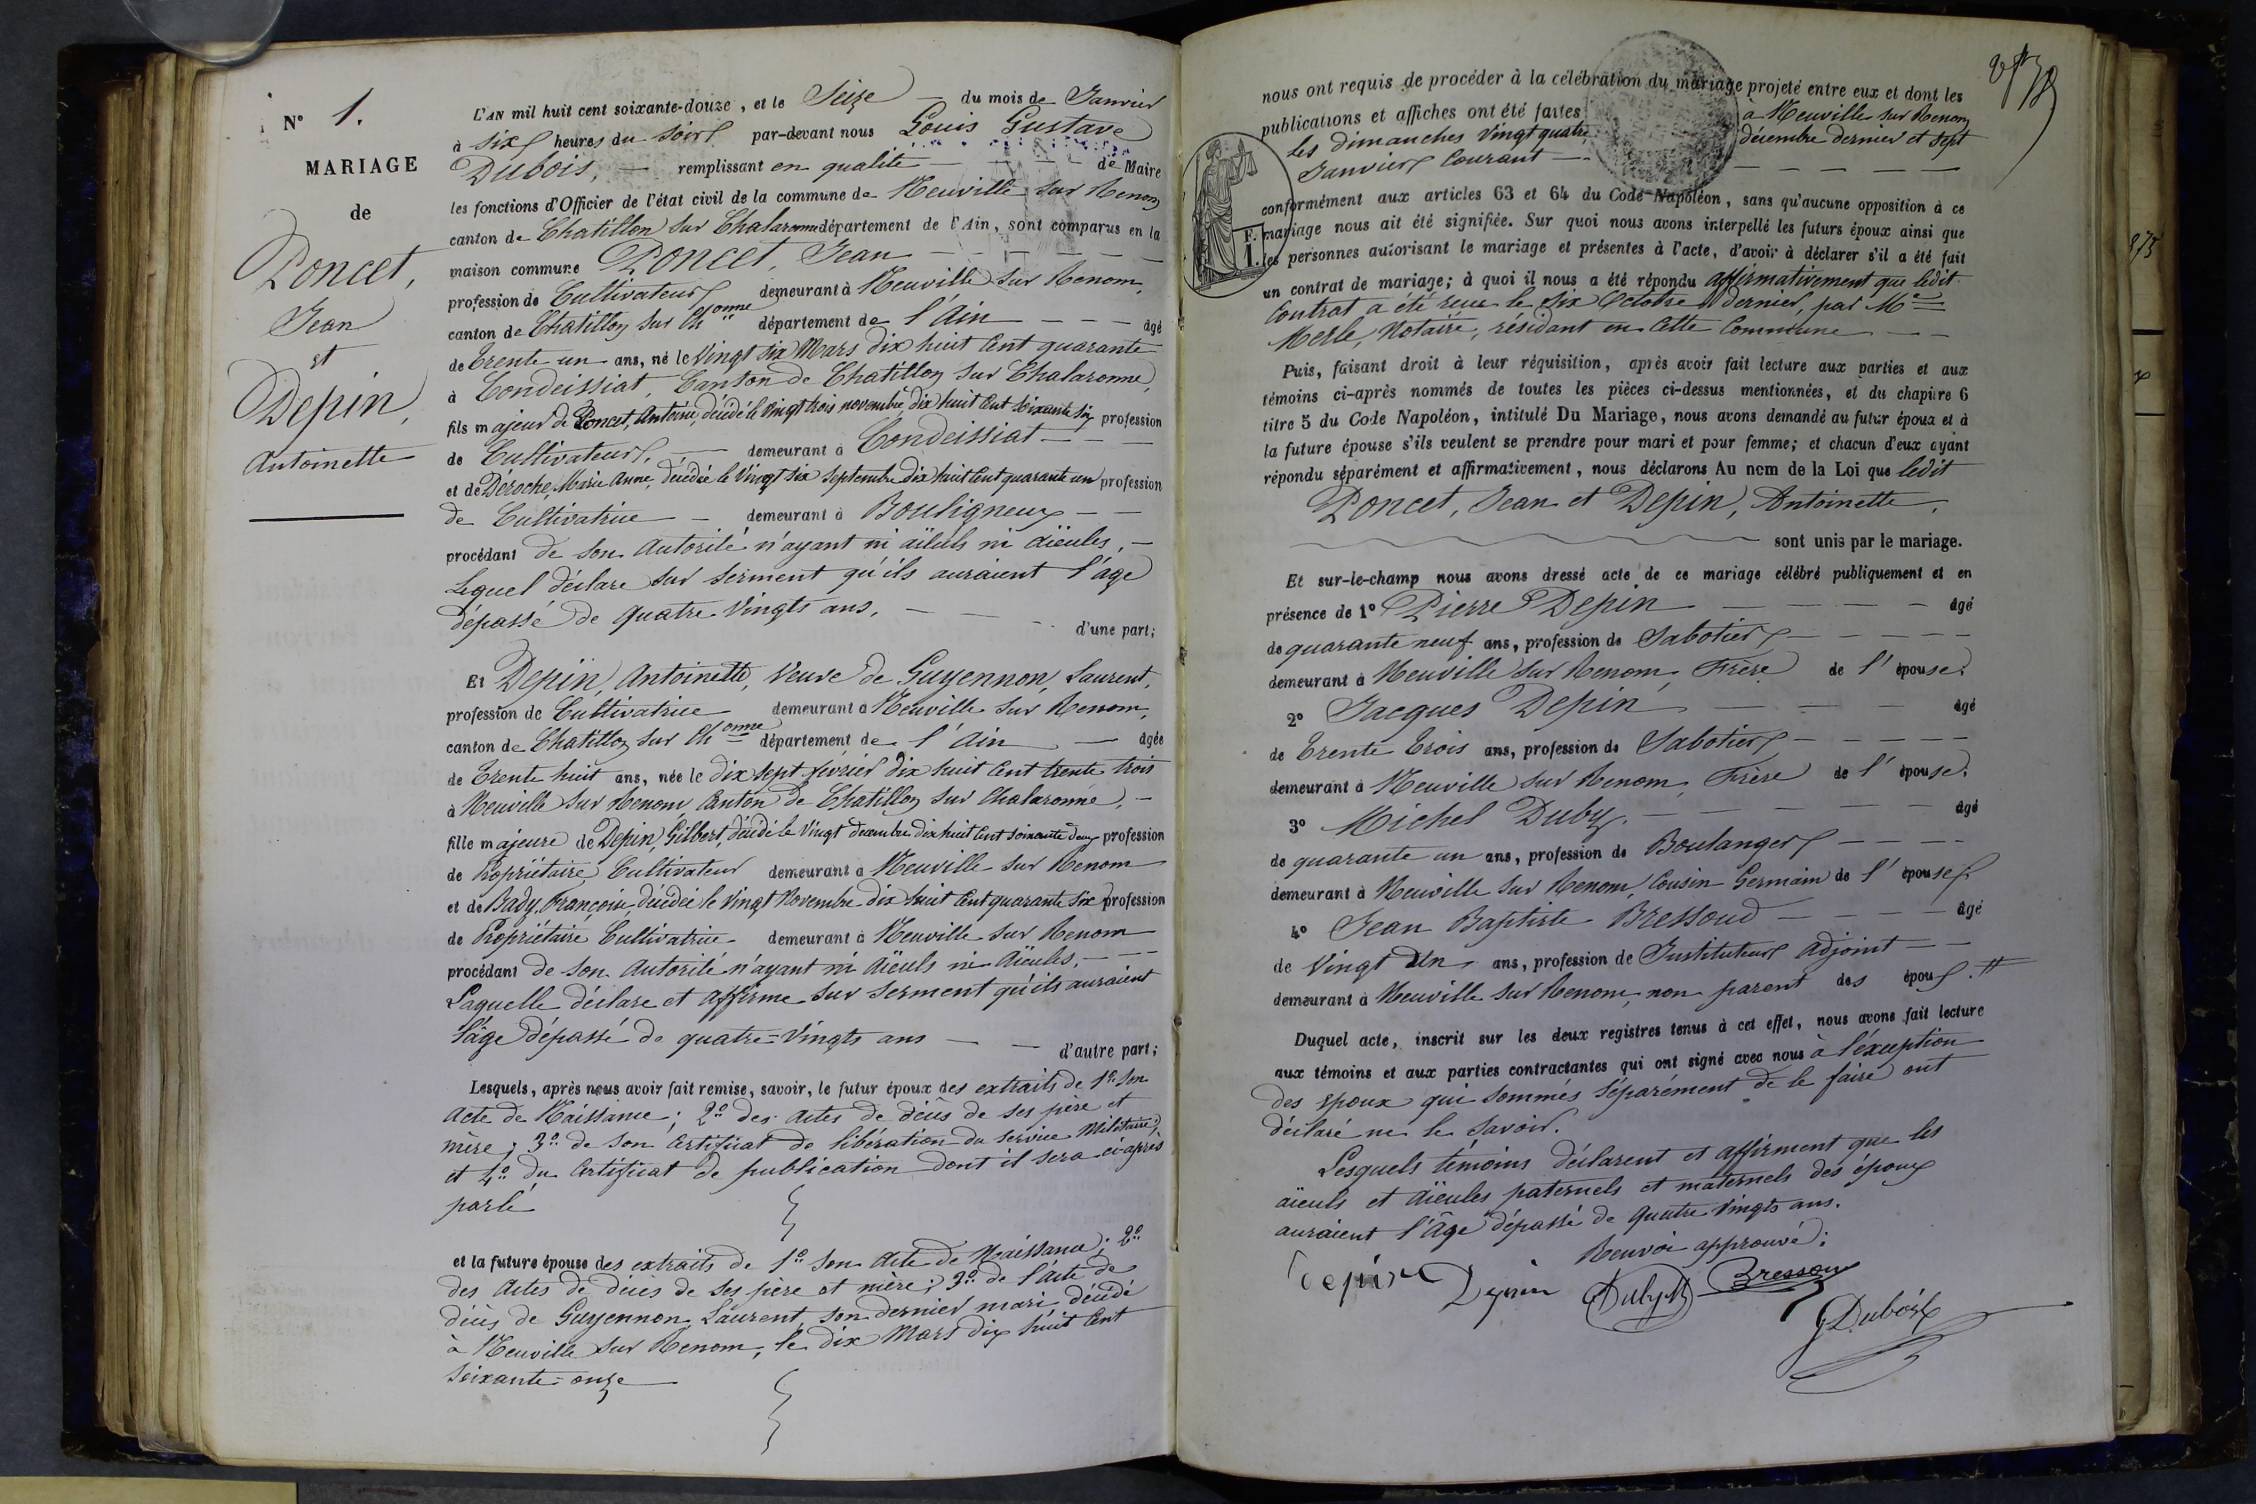 N° 1.
MARIAGE
de
Poncet,
Jean
et
Depin,
Antoinette
L'AN mil huit cent soixante-douze, et le Seize — du mois de Janvier
à six heures du soir par-devant nous Louis Gustave
Dubois, — remplissant en qualité — de Maire
les fonctions d'Officier de l'état civil de la commune de Neuville sur Renom
canton de Chatillon sur Chalaronne département de l'Ain, sont comparus en la
maison commune Poncet, Jean — — — —
profession de Cultivateur demeurant à Neuville sur Renom,
canton de Chatillon sur Chonne département de l'Ain — — — âgé
de Trente un ans, né le Vingt six Mars dix huit cent quarante
à Condeissiat, Canton de Chatillon sur Chalaronne,
fils majeur de Poncet, Antoine, décédé le vingt trois novembre dix huit cent soixante six profession
de Cultivateur, — demeurant à Condeissiat — — —
et de Déroche, Marie Anne, décédée le Vingt six septembre dix huit cent quarante un profession
de Cultivatrice — demeurant à Bouligneux — —
procédant de son autorité n'ayant ni aïeuls ni aïeules, —
Lequel déclare sur serment qu'ils auraient l'âge
dépassé de quatre Vingts ans, — — —
d'une part;
Et Depin, Antoinette, Veuve de Guyennon, Laurent,
profession de Cultivatrice demeurant à Neuville sur Renom,
canton de Chatillon sur Chonne département de l'Ain — âgée
de Trente huit ans, née le dix sept février dix huit cent trente trois
à Neuville sur Renom, Canton de Chatillon sur Chalaronne, —
fille majeure de Depin, Gilbert, décédé le Vingt décembre dix huit cent soixante deux profession
de Propriétaire Cultivateur demeurant à Neuville sur Renom
et de Bady, Françoise, décédée le Vingt Novembre dix huit cent quarante six profession
de Propriétaire Cultivatrice demeurant à Neuville sur Renom
procédant de son autorité n'ayant ni aïeuls ni aïeules, — — —
Laquelle déclare et affirme sur serment qu'ils auraient
l'âge dépassé de quatre-Vingts ans — —
d'autre part;
Lesquels, après nous avoir fait remise, savoir, le futur époux des extraits de 1° son
acte de Naissance; 2° des actes de décès de ses père et
mère; 3° de son certificat de libération du service Militaire;
et 4° du Certificat de publication dont il sera ci-après
parlé
et la future épouse des extraits de 1° son acte de Naissance; 2°
des actes de décès de ses père et mère; 3° de l'acte de
décès de Guyennon Laurent, son dernier mari décédé
à Neuville sur Renom, le dix Mars dix huit cent
soixante-onze
nous ont requis de procéder à la célébration du mariage projeté entre eux et dont les
publications et affiches ont été faites à Neuville sur Renom
les dimanches Vingt quatre décembre dernier et sept
Janvier Courant — — — — —
conformément aux articles 63 et 64 du Code Napoléon, sans qu'aucune opposition à ce
mariage nous ait été signifiée. Sur quoi nous avons interpellé les futurs époux ainsi que
les personnes autorisant le mariage et présentes à l'acte, d'avoir à déclarer s'il a été fait
un contrat de mariage; à quoi il nous a été répondu affirmativement que ledit
Contrat a été reçu le six Octobre dernier, par Me
Merle, Notaire, résidant en cette Commune — —
Puis, faisant droit à leur réquisition, après avoir fait lecture aux parties et aux
témoins ci-après nommés de toutes les pièces ci-dessus mentionnées, et du chapitre 6
titre 5 du Code Napoléon, intitulé Du Mariage, nous avons demandé au futur époux et à
la future épouse s'ils veulent se prendre pour mari et pour femme; et chacun d'eux ayant
répondu séparément et affirmativement, nous déclarons Au nom de la Loi que ledit
Poncet, Jean et Depin, Antoinette,
sont unis par le mariage.
Et sur-le-champ nous avons dressé acte de ce mariage célébré publiquement et en
présence de 1° Pierre Depin — — — — âgé
de quarante neuf ans, profession de Sabotier — — — —
demeurant à Neuville sur Renom, Frère de l'épouse.
2° Jacques Depin — — — âgé
de Trente Trois ans, profession de Sabotier — — — —
demeurant à Neuville sur Renom, Frère de l'épouse.
3° Michel Duby. — — — — âgé
de quarante un ans, profession de Boulanger — — —
demeurant à Neuville sur Renom, Cousin Germain de l'épouse.
4° Jean Baptiste Bressoud — — — — âgé
de Vingt Un ans, profession de Instituteur Adjoint — —
demeurant à Neuville sur Renom, non parent des époux.
Duquel acte, inscrit sur les deux registres tenus à cet effet, nous avons fait lecture
aux témoins et aux parties contractantes qui ont signé avec nous à l'exception
des époux qui sommés séparément de le faire ont
déclaré ne le savoir.
Lesquels témoins déclarent et affirment que les
aïeuls et aïeules paternels et maternels des époux
auraient l'âge dépassé de quatre Vingts ans.
Renvoi approuvé:
Depin Depin Duby M Bressoud
G Dubois
875